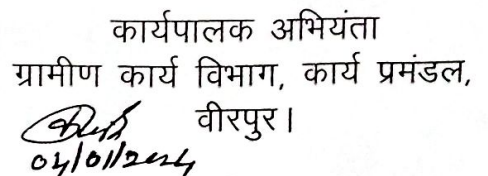 कार्यपालक अभियंता
ग्रामीण कार्य विभाग, कार्य प्रमंडल,
वीरपुर।
04/01/2024